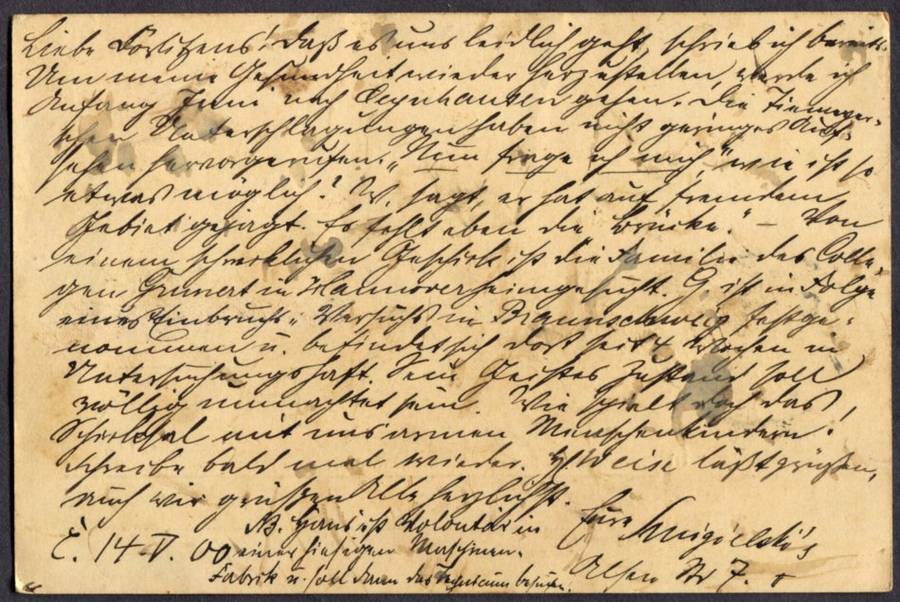 Liebe                ! Daß es uns leidlich geht, schrieb ich bereits.
Um meine Gesundheit wieder herzustellen, werde ich
Anfang Juni nach Oeynhausen gehen. Die
schen Unterschlagungen haben nicht geringes Auf-
sehen hervorgerufen. „Nun frage ich mich," wie ist so
etwas möglich? W. sagt, er hat auf fremdem
Gebiet gejagt. Es fehlt eben die Brücke." – Von
einem schrecklichen Geschick ist die Familie des Colle-
gen Grunert in Hannover heimgesucht. G. ist in Folge
eines Einbruchs-Versuchs in Braunschweig festge-
nommen u. befindet sich dort seit 4 Wochen in
Untersuchungshaft. Sein Geistes Zustand soll
völlig umnachtet sein. Wie spielt doch das
Schicksal mit uns armen Menschenkindern!
Schreibe bald mal wieder. Weise läßt grüßen,
auch wir grüßen Alle herzlichst.
NB. Hans ist Volontär in Eure
E. 14. V. 00 einer hiesigen Maschinen-
Fabrik u. soll dann das Technicum besuchen. Alsen Str 7.